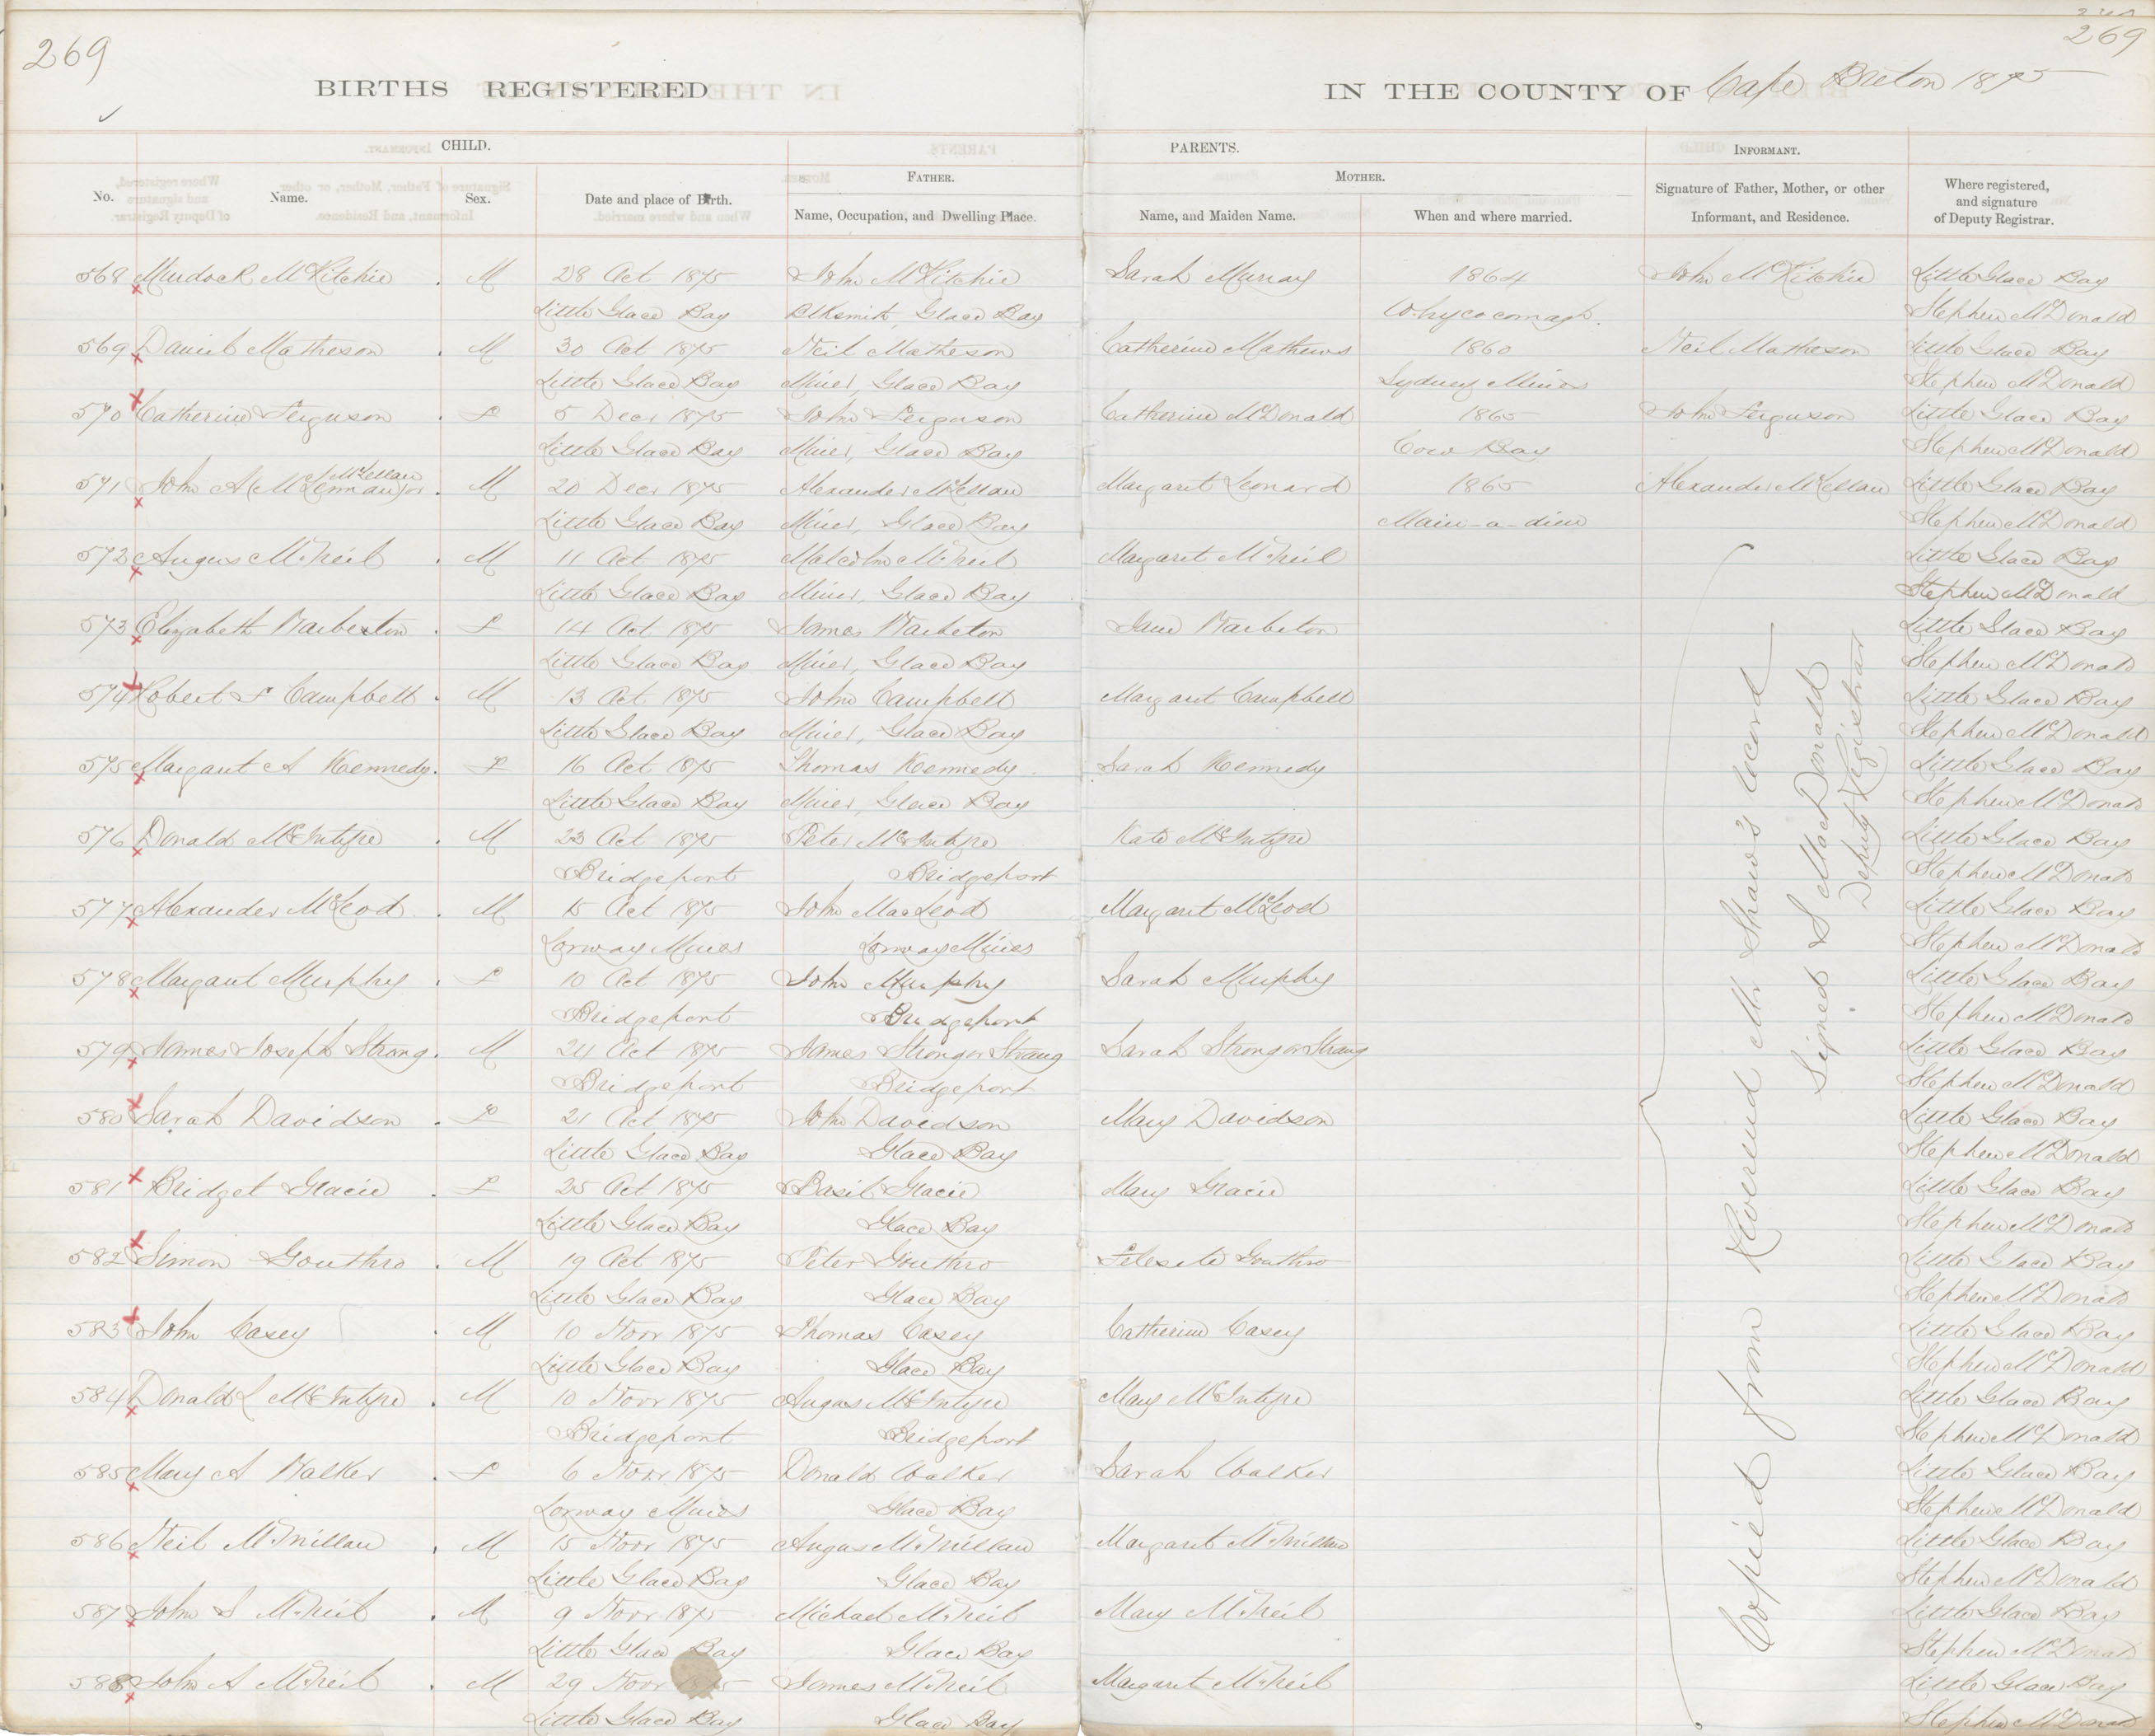 269
269
BIRTHS REGISTERED
IN THE COUNTY OF Cape Breton 1875
CHILD.
PARENTS.
INFORMANT.
No.
Name.
Sex.
Date and place of Birth.
FATHER.
Name, Occupation, and Dwelling Place.
MOTHER.
Name, and Maiden Name.
When and where married.
Signature of Father, Mother, or other
Informant, and Residence.
Where registered,
and signature
of Deputy Registrar.
568 Murdock McKitchie M 28 Oct 1875 John McKitchie Sarah Murray 1864 John McKitchie Little Glace Bay
Little Glace Bay Blksmith, Glace Bay Whycocomagh. Stephen McDonald
569 Daniel Matheson M 30 Oct 1875 Neil Matheson Catherine Mathews 1860 Neil Matheson Little Glace Bay
Little Glace Bay Miner, Glace Bay Sydney Mines Stephen McDonald
570 Catherine Ferguson F 5 Decr 1875 John Ferguson Catherine McDonald 1865 John Ferguson Little Glace Bay
Little Glace Bay Miner, Glace Bay Cow Bay Stephen McDonald
McLellan
571 John A (McLennan) or M 20 Decr 1875 Alexander McLellan Margaret Leonard 1865 Alexander McLellan Little Glace Bay
Little Glace Bay Miner, Glace Bay Main-a-dieu Stephen McDonald
572 Angus McNeil M 11 Oct 1875 Malcolm McNeil Margaret McNeil Little Glace Bay
Little Glace Bay Miner, Glace Bay Stephen McDonald
573 Elizabeth Warberton F 14 Oct 1875 James Warbeton Jane Warbeton Little Glace Bay
Little Glace Bay Miner, Glace Bay Stephen McDonald
574 Robert F Campbell M 13 Oct 1875 John Campbell Margaret Campbell Little Glace Bay
Little Glace Bay Miner, Glace Bay Stephen McDonald
575 Margaret A Kennedy F 16 Oct 1875 Thomas Kennedy Sarah Kennedy Little Glace Bay
Little Glace Bay Miner, Glace Bay Stephen McDonald
576 Donald McIntyre M 23 Oct 1875 Peter McIntyre Kate McIntyre Little Glace Bay
Bridgeport Bridgeport Stephen McDonald
577 Alexander McLeod M 15 Oct 1875 John MacLeod Margaret McLeod Little Glace Bay
Lorway Mines Lorway Mines Stephen McDonald
578 Margaret Murphy F 10 Oct 1875 John Murphy Sarah Murphy Little Glace Bay
Bridgeport Bridgeport Stephen McDonald
579 James Joseph Strong M 24 Oct 1875 James Strong or Strang Sarah Strong or Strang Little Glace Bay
Bridgeport Bridgeport Stephen McDonald
580 Sarah Davidson F 21 Oct 1875 John Davidson Mary Davidson Little Glace Bay
Little Glace Bay Glace Bay Stephen McDonald
581 Bridget Gracie F 25 Oct 1875 Basil Gracie Mary Gracie Little Glace Bay
Little Glace Bay Glace Bay Stephen McDonald
582 Simon Gouthro M 19 Oct 1875 Peter Gouthro Gouthro Little Glace Bay
Little Glace Bay Glace Bay Stephen McDonald
583 John Casey M 10 Novr 1875 Thomas Casey Catherine Casey Little Glace Bay
Little Glace Bay Glace Bay Stephen McDonald
584 Donald L McIntyre M 10 Novr 1875 Angus McIntyre Mary McIntyre Little Glace Bay
Bridgeport Bridgeport Stephen McDonald
585 Mary A Walker F 6 Novr 1875 Donald Walker Sarah Walker Little Glace Bay
Lorway Mines Glace Bay Stephen McDonald
586 Neil McMillan M 15 Novr 1875 Angus McMillan Margaret McMillan Little Glace Bay
Little Glace Bay Glace Bay Stephen McDonald
587 John S McNeil M 9 Novr 1875 Michael McNeil Mary McNeil Little Glace Bay
Little Glace Bay Glace Bay Stephen McDonald
588 John A McNeil M 29 Novr James McNeil Margaret McNeil Little Glace Bay
Little Glace Bay Glace Bay Stephen McDonald
Copied from Reverend Mr Shaw's record
Signed S MacDonald
Deputy Registrar